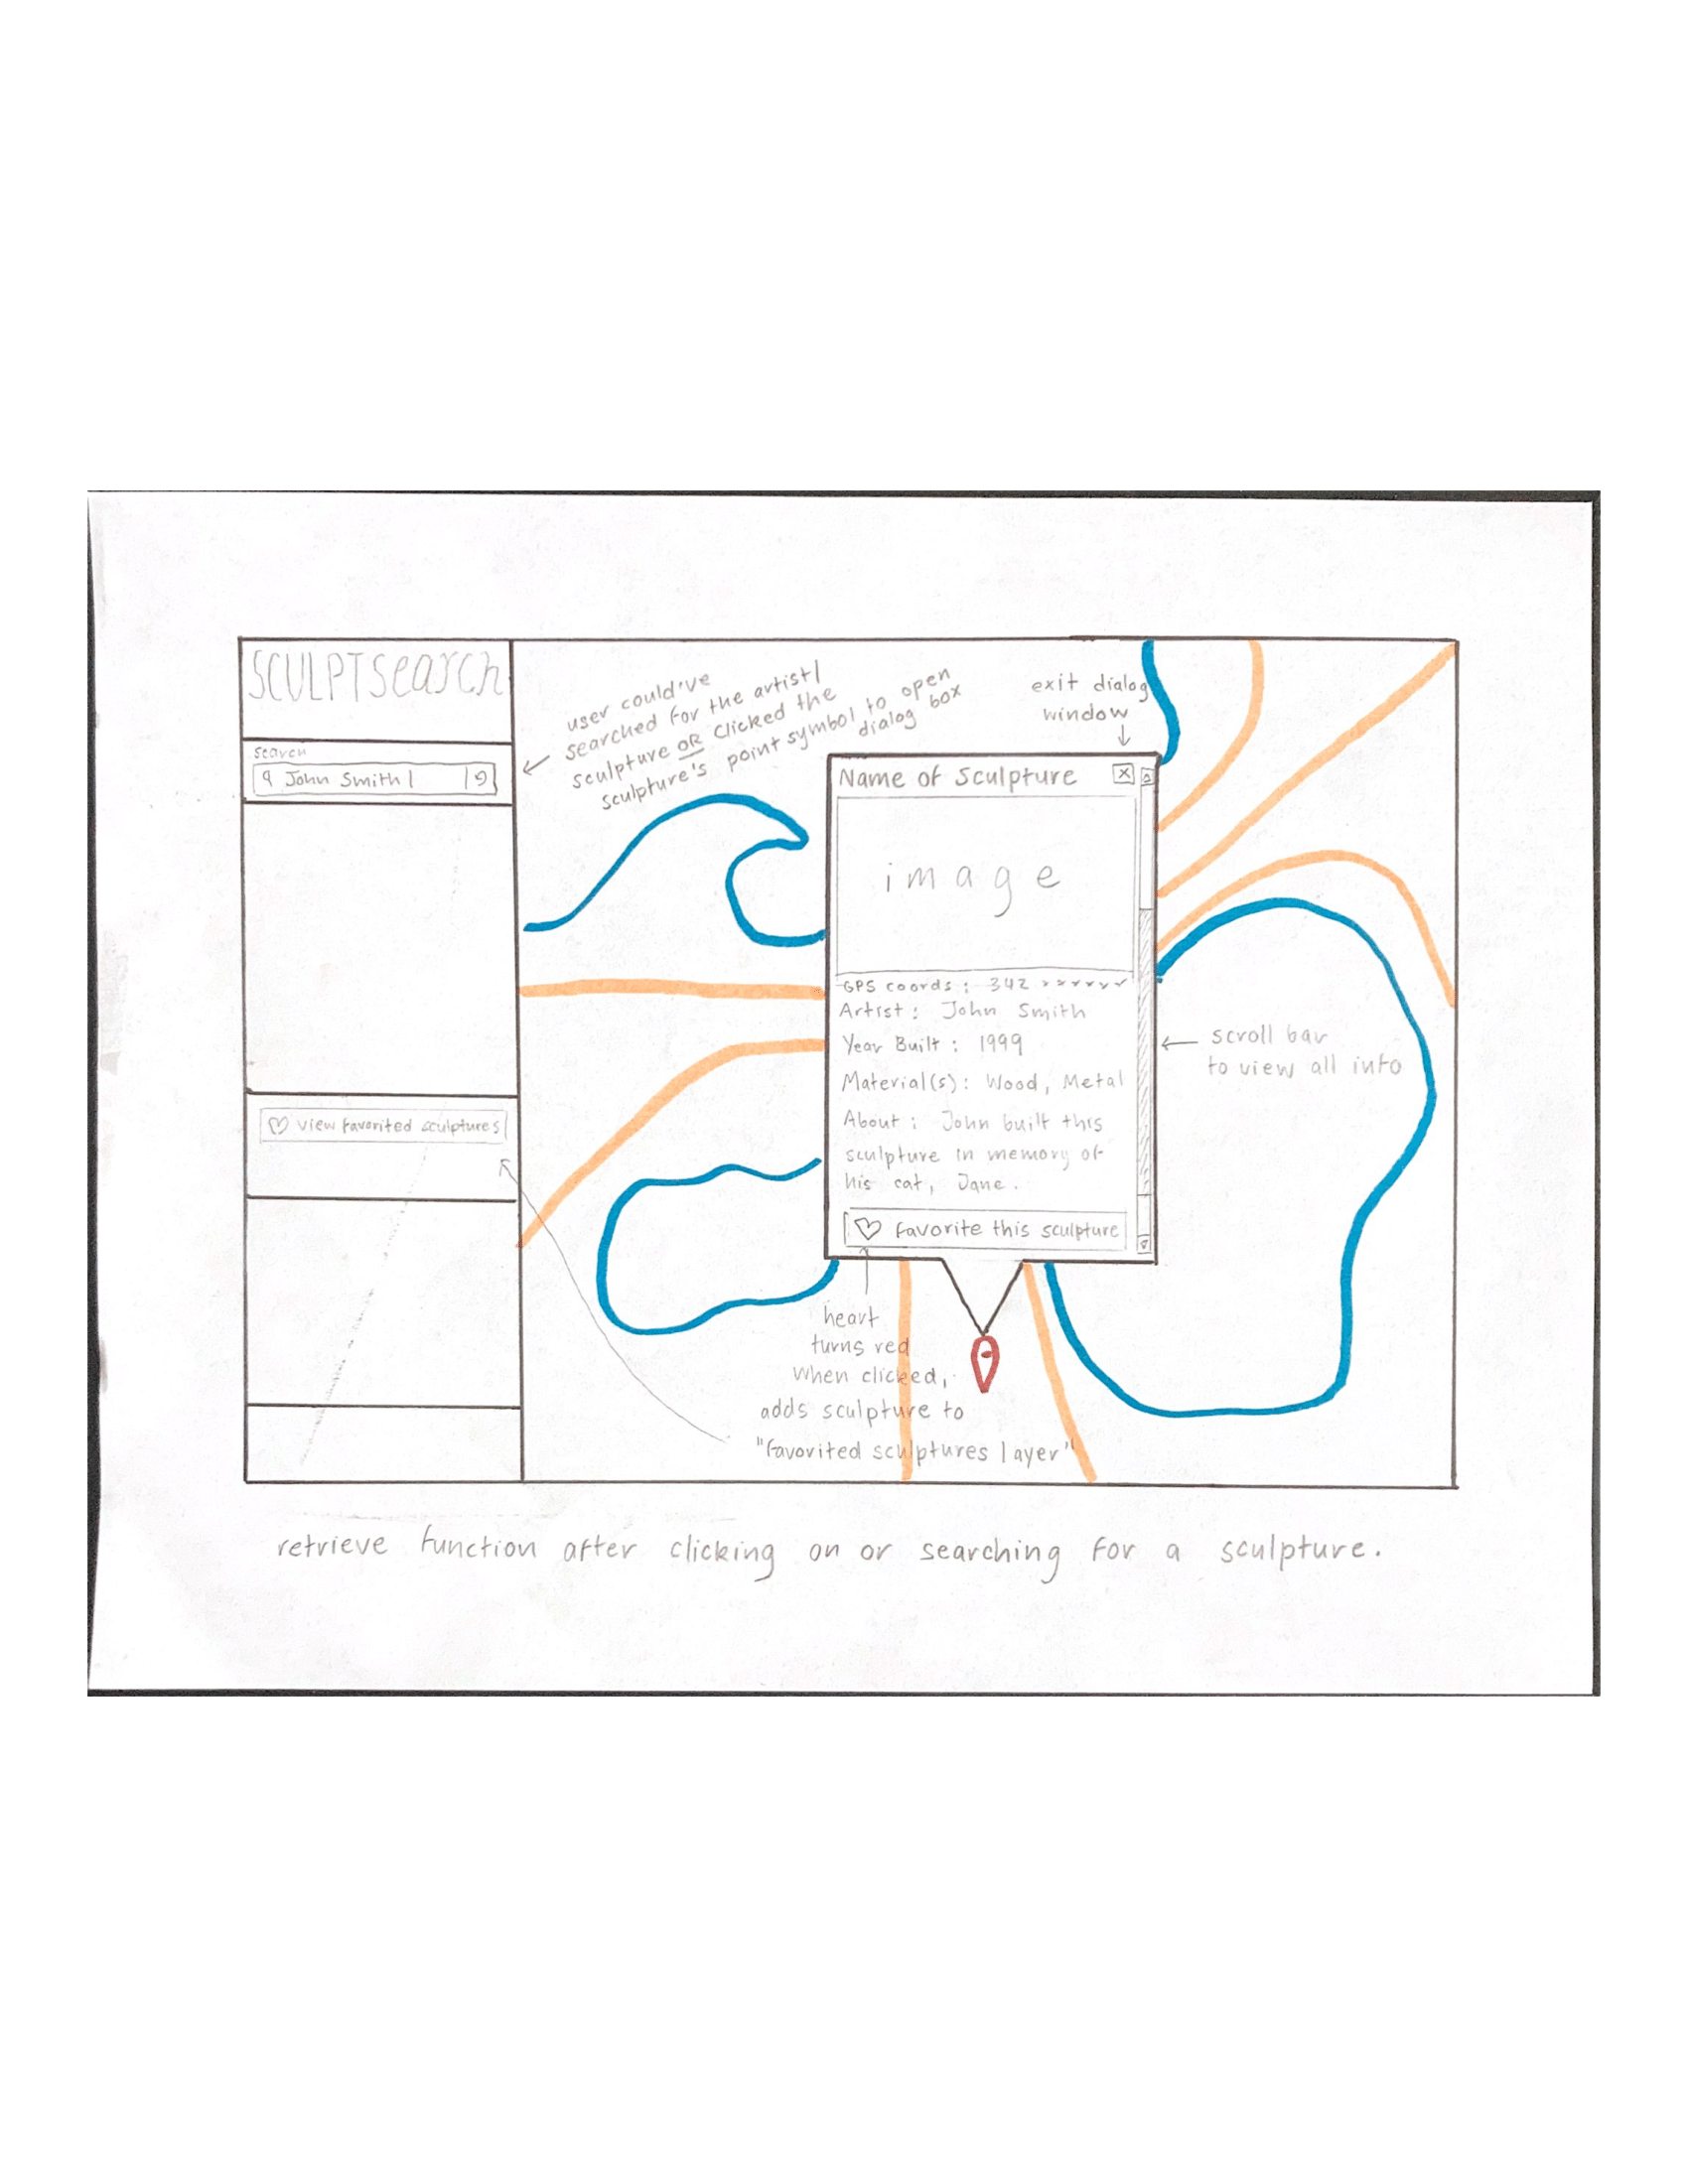 SCULPTSearch
search
John Smith
user could've
searched for the artist/
sculpture OR clicked the
sculpture's point symbol to open
dialog box
exit dialog
window
Name of Sculpture
image
GPS coords: 342
Artist: John Smith
Year Built: 1999
Material(s): Wood, Metal
About: John built this
sculpture in memory of
his cat, Jane.
favorite this sculpture
scroll bar
to view all info
view favorited sculptures
heart
turns red
when clicked,
adds sculpture to
"favorited sculptures layer"
retrieve function after clicking on or searching for a sculpture.